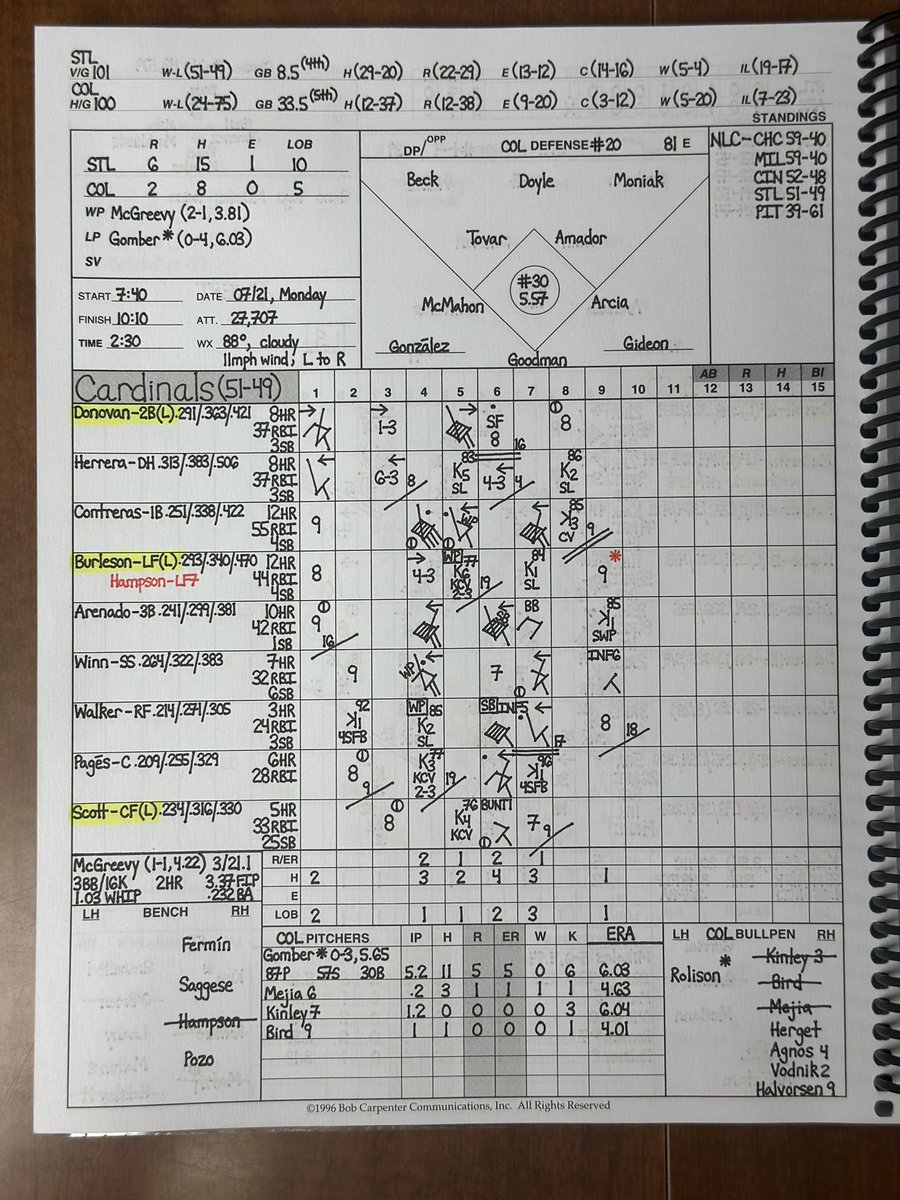 STL
V/G 101 W-L (51-49) GB 8.5 (4th) H (29-20) R (22-29) E (13-12) C (14-16) W (5-4) IL (19-17)
COL
H/G 100 W-L (24-75) GB 33.5 (5th) H (12-37) R (12-38) E (9-20) C (3-12) W (5-20) IL (7-23)
STANDINGS
R H E LOB
STL 6 15 1 10
COL 2 8 0 5
WP McGreevy (2-1, 3.81)
LP Gomber * (0-4, 6.03)
SV
START 7:40 DATE 07/21, Monday
FINISH 10:10 ATT. 27,707
TIME 2:30 WX 88°, cloudy
11mph wind, L to R
DP/OPP COL DEFENSE #20 81 E
Beck Doyle Moniak
Tovar Amador
#30
5.57
McMahon Arcia
González Gideon
Goodman
NLC-CHC 59-40
MIL 59-40
CIN 52-48
STL 51-49
PIT 39-61
Cardinals (51-49) 1 2 3 4 5 6 7 8 9 10 11 12 13 14 15
AB R H BI
Donovan-2B(L) .291/.363/.421 8HR
37RBI
3SB
1-3 SF 8 16 8
Herrera-DH .313/.383/.506 8HR
37RBI
3SB
6-3 8 83 K5 SL 4-3 4 86 K2 SL
Contreras-1B .251/.338/.422 12HR
55RBI
4SB
9 WP 85 K3 CV 9
Burleson-LF(L) .293/.340/.470 12HR
Hampson-LF7 44RBI
4SB
8 4-3 WP 77 K6 KCV 2-3 19 84 K1 SL 9 *
Arenado-3B .241/.299/.381 10HR
42RBI
1SB
9 16 SB BB 85 K1 SWP
Winn-SS .264/.322/.383 7HR
32RBI
6SB
9 WP 7 INF6
Walker-RF .214/.271/.305 3HR
24RBI
3SB
92 K1 4SFB WP 85 K2 SL SB INF5 17 8 18
Pagés-C .209/.255/.329 6HR
28RBI
8 9 77 K3 KCV 2-3 19 96 K1 4SFB
Scott-CF(L) .234/.316/.330 5HR
33RBI
25SB
8 76 K4 KCV BUNT1 7 9
McGreevy (1-1, 4.22) 3/21.1
3BB/16K 2HR 3.37 FIP
1.03 WHIP .232 BA
R/ER 2 1 2 1
H 2 3 2 4 3 1
E
LOB 2 1 1 2 3 1
LH BENCH RH
Fermín
Saggese
Hampson
Pozo
COL PITCHERS IP H R ER W K ERA
Gomber * 0-3, 5.65
87P 57S 30B 5.2 11 5 5 0 6 6.03
Mejia 6 .2 3 1 1 1 1 4.63
Kinley 7 1.2 0 0 0 0 3 6.04
Bird 9 1 1 0 0 0 1 4.01
LH COL BULLPEN RH
Rolison *
Kinley 3
Bird
Mejia
Herget
Agnos 4
Vodnik 2
Halvorsen 9
©1996 Bob Carpenter Communications, Inc. All Rights Reserved